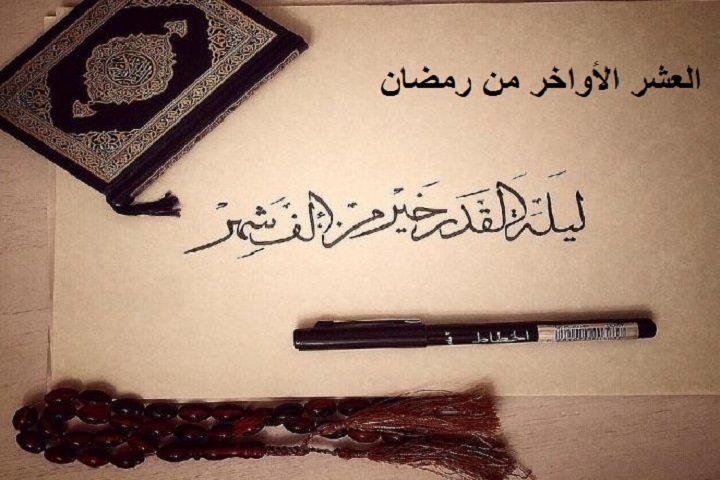 العشر الأواخر من رمضان
ليلة القدر خير من ألف شهر
الخطاط